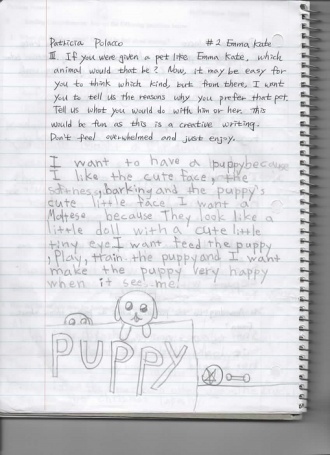 Patricia Polacco #2 Emma Kate
III If you were given a pet like Emma Kate, which
animal would that be? Now, it may be easy for
you to think which kind, but from there, I want
you to tell us the reasons why you prefer that pet.
Tell us what you would do with him or her. This
would be fun as this is a creative writing.
Don't feel overwhelmed and just enjoy.
I want to have a puppy because
I like the cute face, the
barking and the puppy's
cute little face I want a
Maltese because They look like a
little doll with a cute little
tiny eye I want feed the puppy
, play, train the puppy and I want
make the puppy very happy
when it see me!
PUPPY